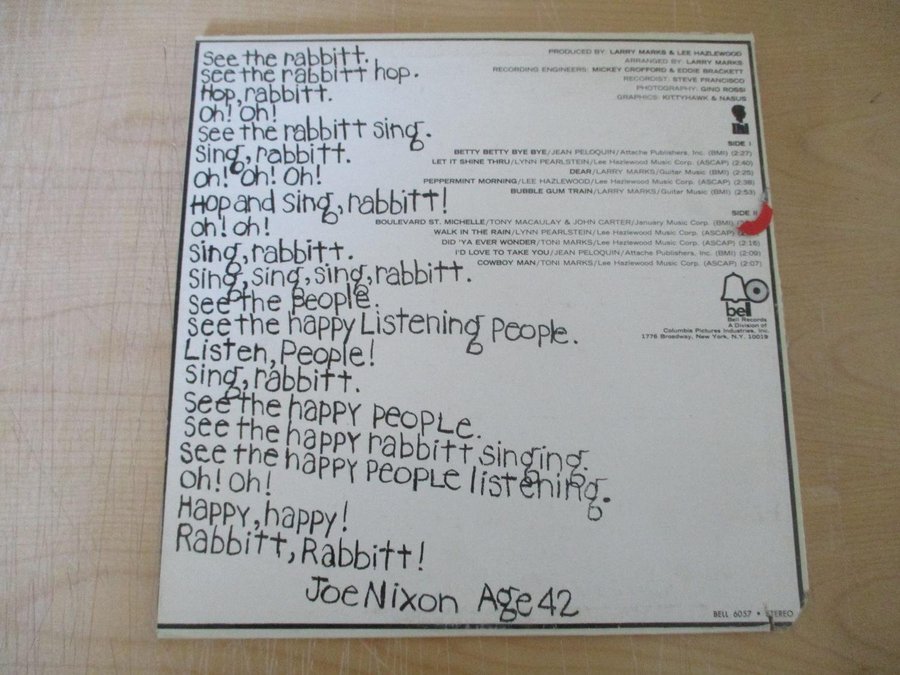 See the rabbitt.
see the rabbitt hop.
Hop, rabbitt.
Oh! Oh!
see the rabbitt sing.
Sing, rabbitt.
Oh! Oh! Oh!
Hop and sing, rabbitt!
oh! oh!
Sing, rabbitt.
Sing, sing, sing, rabbitt.
See the people.
See the happy Listening People.
Listen, People!
Sing, rabbitt.
See the happy people.
See the happy rabbitt singing.
See the happy people listening.
Oh! Oh!
Happy, happy!
Rabbitt, Rabbitt!
Joe Nixon Age 42
PRODUCED BY: LARRY MARKS & LEE HAZLEWOOD
ARRANGED BY: LARRY MARKS
RECORDING ENGINEERS: MICKEY CROFFORD & EDDIE BRACKETT
RECORDIST: STEVE FRANCISCO
PHOTOGRAPHY: GINO ROSSI
GRAPHICS: KITTYHAWK & NASUS
SIDE I
BETTY BETTY BYE BYE/JEAN PELOQUIN/Attache Publishers, Inc. (BMI) (2:27)
LET IT SHINE THRU/LYNN PEARLSTEIN/Lee Hazlewood Music Corp. (ASCAP) (2:40)
DEAR/LARRY MARKS/Guitar Music (BMI) (2:25)
PEPPERMINT MORNING/LEE HAZLEWOOD/Lee Hazlewood Music Corp. (ASCAP) (2:38)
BUBBLE GUM TRAIN/LARRY MARKS/Guitar Music (BMI) (2:53)
SIDE II
BOULEVARD ST. MICHELLE/TONY MACAULAY & JOHN CARTER/January Music Corp. (BMI)
WALK IN THE RAIN/LYNN PEARLSTEIN/Lee Hazlewood Music Corp. (ASCAP)
DID 'YA EVER WONDER/TONI MARKS/Lee Hazlewood Music Corp. (ASCAP) (2:16)
I'D LOVE TO TAKE YOU/JEAN PELOQUIN/Attache Publishers, Inc. (BMI) (2:09)
COWBOY MAN/TONI MARKS/Lee Hazlewood Music Corp. (ASCAP) (2:07)
bell
Bell Records
A Division of
Columbia Pictures Industries, Inc.
1776 Broadway, New York, N.Y. 10019
BELL 6057 • STEREO